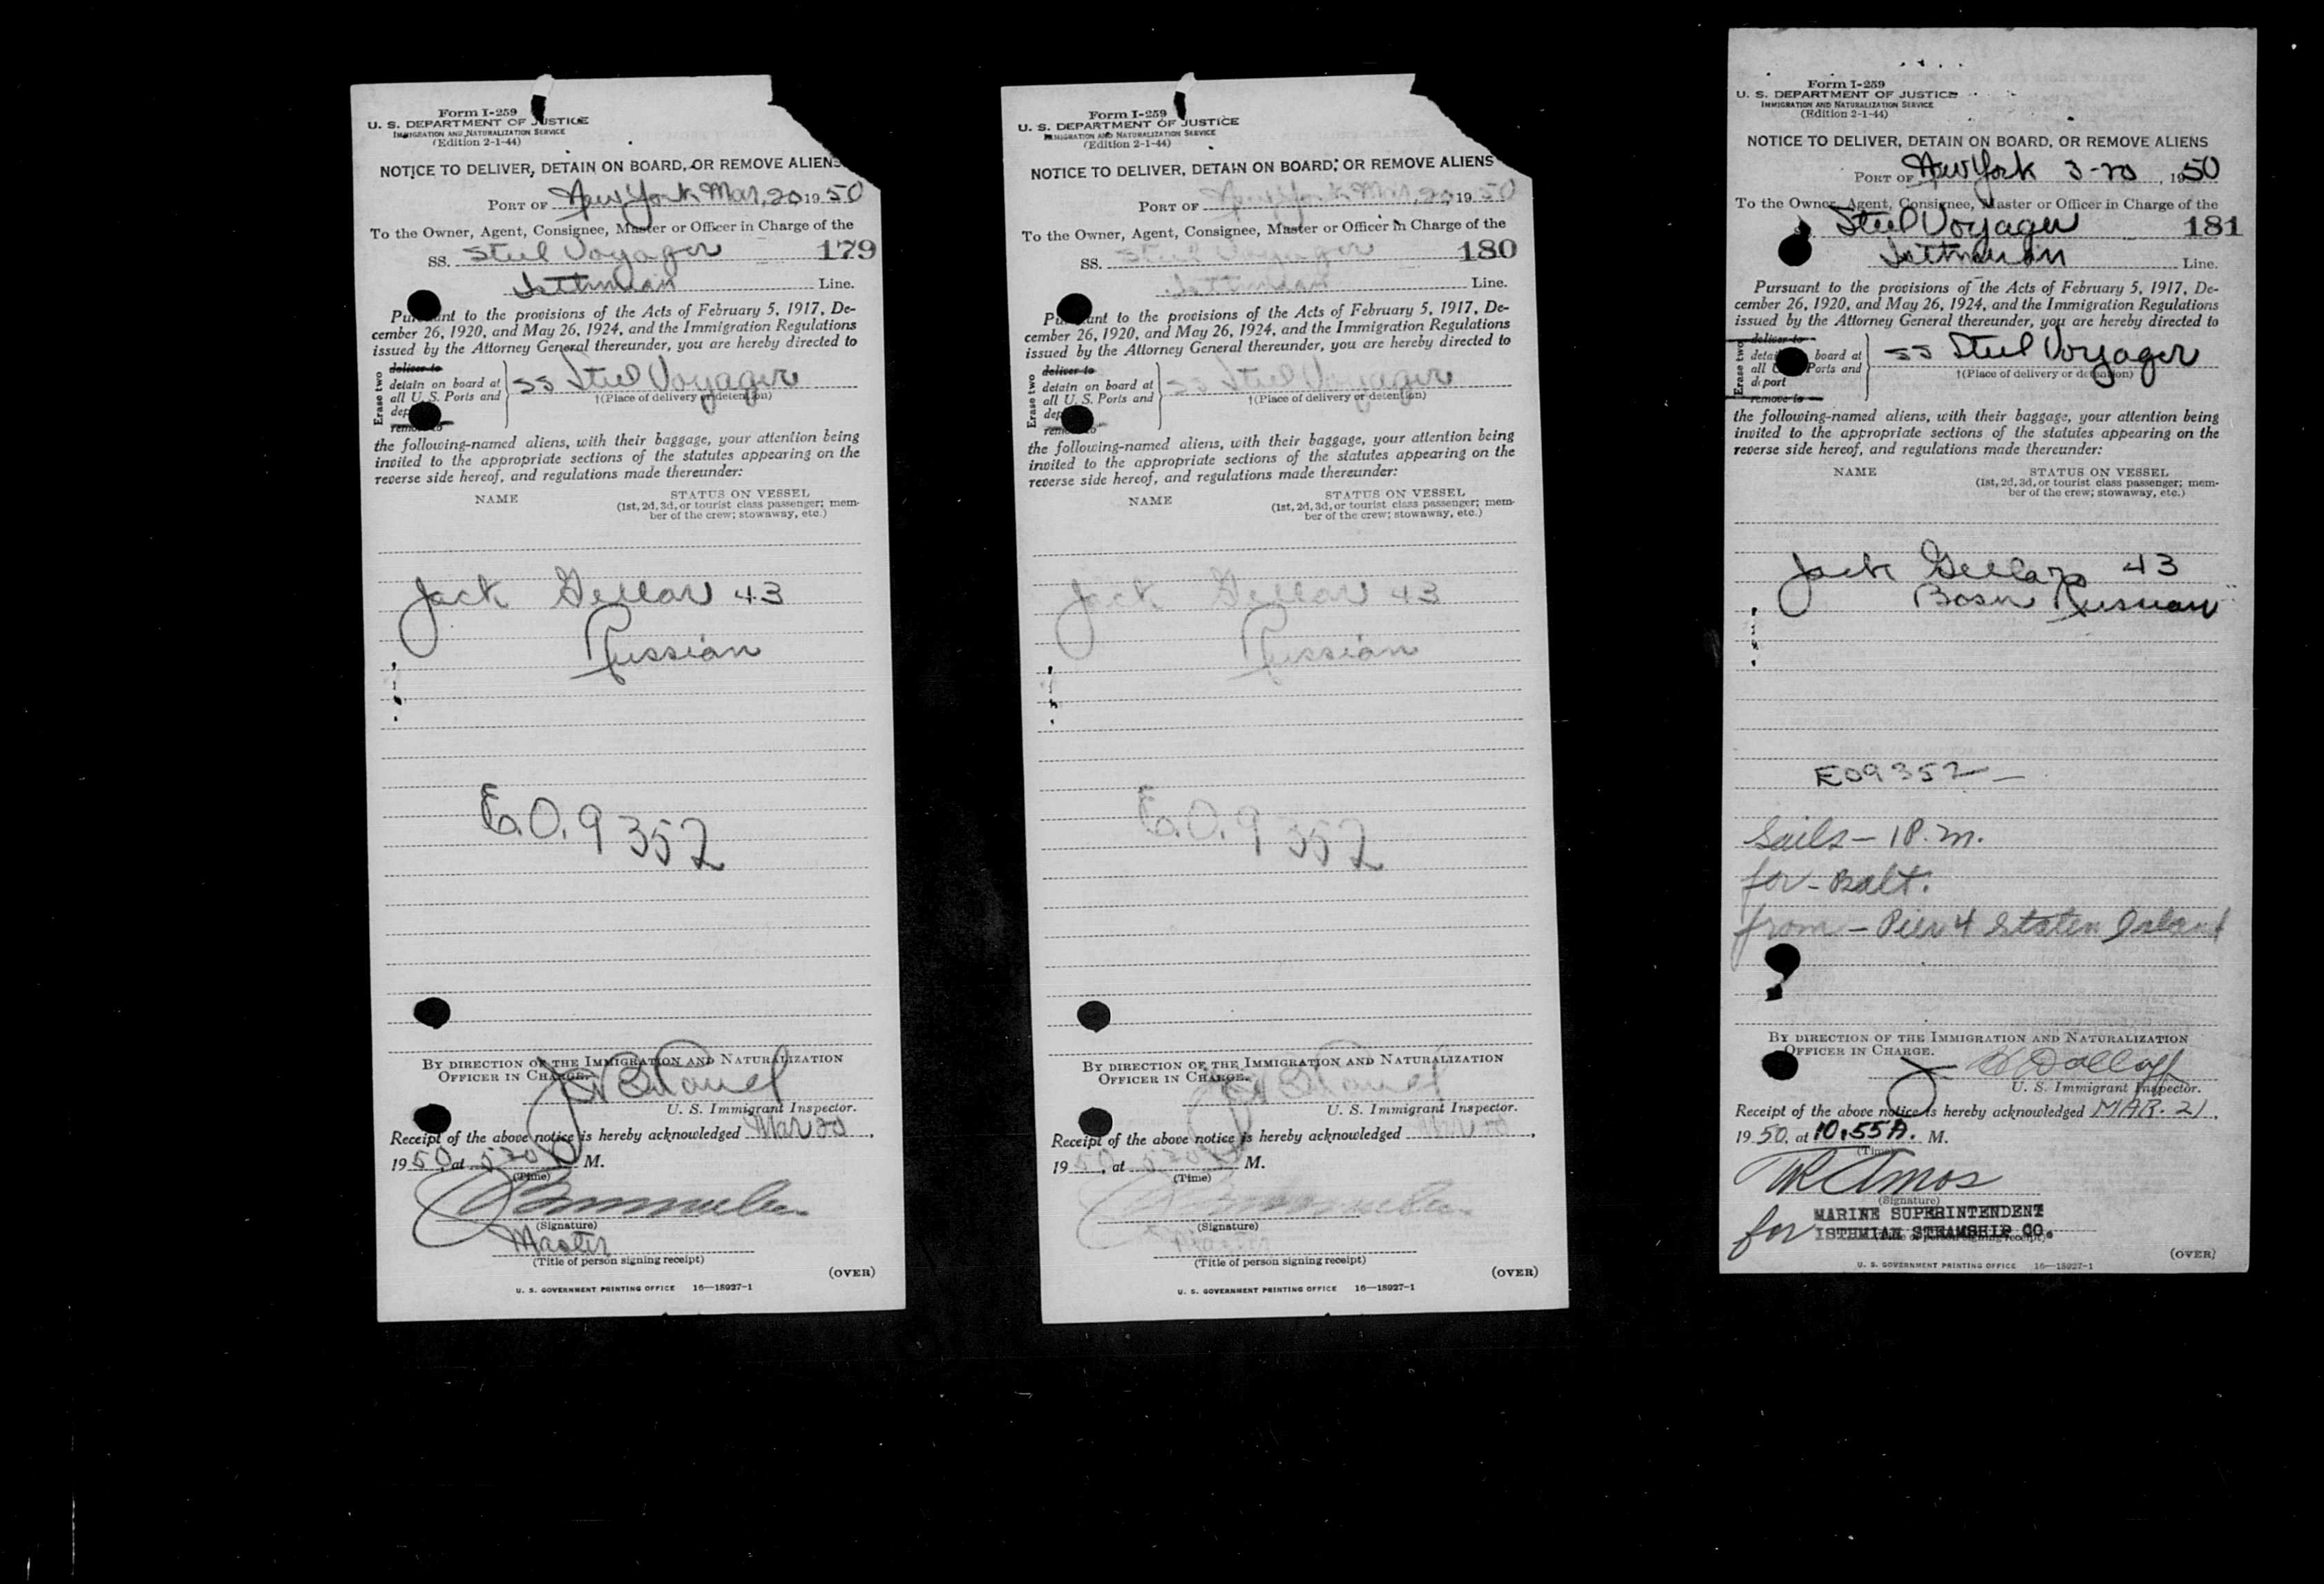 Form I-259
U. S. DEPARTMENT OF JUSTICE
IMMIGRATION AND NATURALIZATION SERVICE
(Edition 2-1-44)
NOTICE TO DELIVER, DETAIN ON BOARD, OR REMOVE ALIENS
PORT OF New York Mar, 20 1950
To the Owner, Agent, Consignee, Master or Officer in Charge of the
SS. Steel Voyager 179
Isthmian Line.
Pursuant to the provisions of the Acts of February 5, 1917, De-
cember 26, 1920, and May 26, 1924, and the Immigration Regulations
issued by the Attorney General thereunder, you are hereby directed to
Erase two
deliver to
detain on board at
all U. S. Ports and
dep
remove to
SS Steel Voyager
†(Place of delivery or detention)
the following-named aliens, with their baggage, your attention being
invited to the appropriate sections of the statutes appearing on the
reverse side hereof, and regulations made thereunder:
NAME STATUS ON VESSEL
(1st, 2d, 3d, or tourist class passenger; mem-
ber of the crew; stowaway, etc.)
Jack Gellar 43
Russian
E.O. 9352
BY DIRECTION OF THE IMMIGRATION AND NATURALIZATION
OFFICER IN CHARGE.
U. S. Immigrant Inspector.
Receipt of the above notice is hereby acknowledged Mar 20,
1950, at 530 M.
(Time)
(Signature)
Master
(Title of person signing receipt)
(OVER)
U. S. GOVERNMENT PRINTING OFFICE 16—18927-1
Form I-259
U. S. DEPARTMENT OF JUSTICE
IMMIGRATION AND NATURALIZATION SERVICE
(Edition 2-1-44)
NOTICE TO DELIVER, DETAIN ON BOARD, OR REMOVE ALIENS
PORT OF New York Mar, 20, 1950
To the Owner, Agent, Consignee, Master or Officer in Charge of the
SS. Steel Voyager 180
Isthmian Line.
Pursuant to the provisions of the Acts of February 5, 1917, De-
cember 26, 1920, and May 26, 1924, and the Immigration Regulations
issued by the Attorney General thereunder, you are hereby directed to
Erase two
deliver to
detain on board at
all U. S. Ports and
dep
remove to
SS Steel Voyager
†(Place of delivery or detention)
the following-named aliens, with their baggage, your attention being
invited to the appropriate sections of the statutes appearing on the
reverse side hereof, and regulations made thereunder:
NAME STATUS ON VESSEL
(1st, 2d, 3d, or tourist class passenger; mem-
ber of the crew; stowaway, etc.)
Jack Gellar 43
Russian
E.O. 9352
BY DIRECTION OF THE IMMIGRATION AND NATURALIZATION
OFFICER IN CHARGE.
U. S. Immigrant Inspector.
Receipt of the above notice is hereby acknowledged Mar 20,
1950, at 530 M.
(Time)
(Signature)
Master
(Title of person signing receipt)
(OVER)
U. S. GOVERNMENT PRINTING OFFICE 16—18927-1
Form I-259
U. S. DEPARTMENT OF JUSTICE
IMMIGRATION AND NATURALIZATION SERVICE
(Edition 2-1-44)
NOTICE TO DELIVER, DETAIN ON BOARD, OR REMOVE ALIENS
PORT OF New York 3-20, 1950
To the Owner, Agent, Consignee, Master or Officer in Charge of the
Steel Voyager 181
Isthmian Line.
Pursuant to the provisions of the Acts of February 5, 1917, De-
cember 26, 1920, and May 26, 1924, and the Immigration Regulations
issued by the Attorney General thereunder, you are hereby directed to
Erase two
deliver to
detain board at
all U. Ports and
deport
remove to
SS Steel Voyager
†(Place of delivery or detention)
the following-named aliens, with their baggage, your attention being
invited to the appropriate sections of the statutes appearing on the
reverse side hereof, and regulations made thereunder:
NAME STATUS ON VESSEL
(1st, 2d, 3d, or tourist class passenger; mem-
ber of the crew; stowaway, etc.)
Jack Gellar 43
Bosn Russian
EO9352 —
Sails — 1 P. m.
for — Balt.
from — Pier 4 Staten Island
BY DIRECTION OF THE IMMIGRATION AND NATURALIZATION
OFFICER IN CHARGE.
U. S. Immigrant Inspector.
Receipt of the above notice is hereby acknowledged MAR. 21,
1950, at 10:55 A. M.
(Time)
Amos
(Signature)
for MARINE SUPERINTENDENT
ISTHMIAN STEAMSHIP CO.
(Title of person signing receipt)
(OVER)
U. S. GOVERNMENT PRINTING OFFICE 16—18927-1